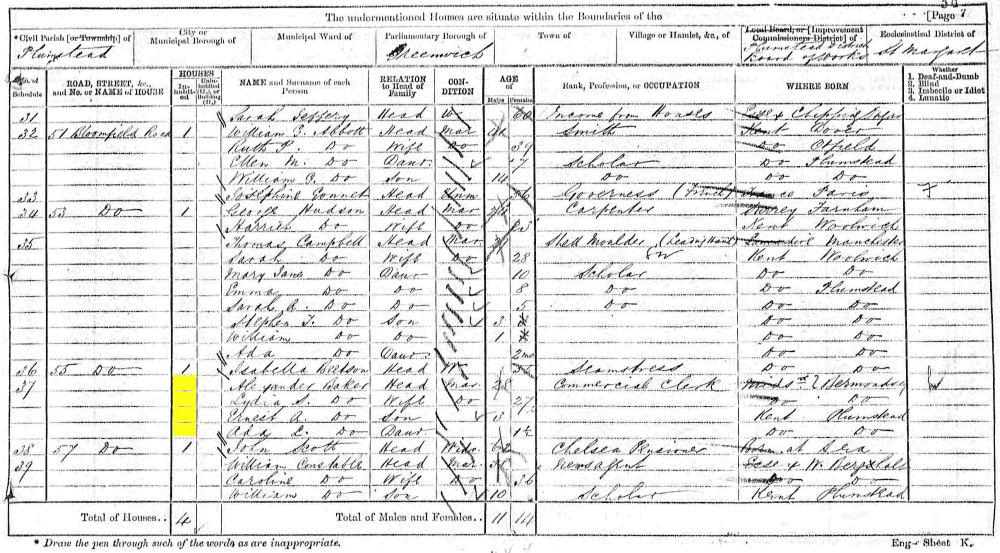 The undermentioned Houses are situate within the Boundaries of the
[Page 7
*Civil Parish [or Township] of City or Municipal Borough of Municipal Ward of Parliamentary Borough of Town of Village or Hamlet, &c., of Local Board, or [Improvement Commissioners District] of Ecclesiastical District of
Plumstead Greenwich Plumstead District Board of Works St Margaret
No. of Schedule ROAD, STREET, &c., and No. or NAME of HOUSE HOUSES Inhabited Uninhabited (U.), or Building (B.) NAME and Surname of each Person RELATION to Head of Family CONDITION AGE of Males Females Rank, Profession, or OCCUPATION WHERE BORN Whether 1. Deaf-and-Dumb 2. Blind 3. Imbecile or Idiot 4. Lunatic
31 Sarah Jeffery Head W 60 Income from Houses Chipping
32 51 Bloomfield Road 1 William G. Abbott Head Mar Smith Kent Dover
Ruth P. Do Wife Do 39 Do
Ellen M. Do Daur 17 Scholar Do Plumstead
William G. Do Son 14 Do Do Do
33 Josephine Head Unm 36 Governess (French) France Paris
34 53 Do 1 George Hudson Head Mar Carpenter Surrey Farnham
Harriet Do Wife Do 23 Kent Woolwich
35 Thomas Campbell Head Mar Shell Moulder (Leading Hand) Manchester
Sarah Do Wife Do 28 Kent Woolwich
Mary Jane Do Daur 10 Scholar Do Do
Emma Do Do 8 Do Do Plumstead
Sarah A. Do Do 5 Do Do Do
Stephen T. Do Son 3 Do Do
William Do Do 1 Do Do
Ada Do Daur 2mo Do Do
36 55 Do 1 Isabella Beetson Head W Seamstress Do Do
37 Alexander Baker Head Mar 28 Commercial Clerk Bermondsey
Lydia S. Do Wife Do 27 Do Do
Ernest A. Do Son 3 Kent Plumstead
Ada L. Do Daur Do Do
38 57 Do 1 John Scott Head Widr 62 Chelsea Pensioner Born at Sea
39 William Constable Head Mar Newsagent
Caroline Do Wife Do 36 Do Do
William Do Son 10 Scholar Kent Plumstead
Total of Houses.. 4 Total of Males and Females.. 11 14
* Draw the pen through such of the words as are inappropriate. Eng.- Sheet K.